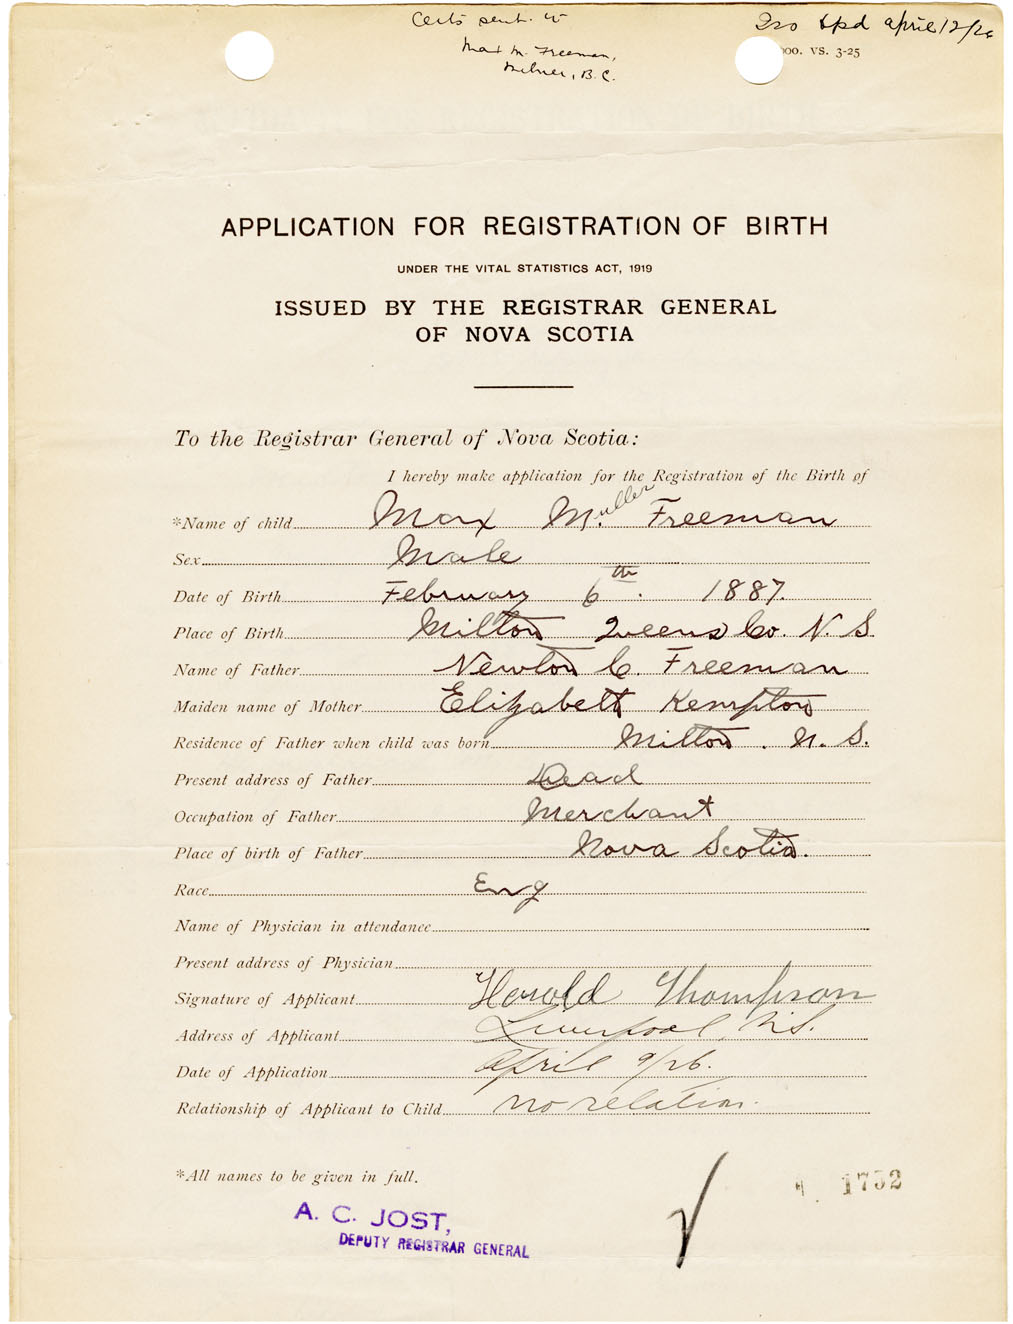 Certs sent. to
Max M. Freeman,
Milner, B.C.
Iss & pd april 12/26
000. VS. 3-25
APPLICATION FOR REGISTRATION OF BIRTH
UNDER THE VITAL STATISTICS ACT, 1919
ISSUED BY THE REGISTRAR GENERAL
OF NOVA SCOTIA
To the Registrar General of Nova Scotia:
I hereby make application for the Registration of the Birth of
*Name of child Max Muller Freeman
Sex Male
Date of Birth February 6th. 1887.
Place of Birth Milton Queens Co. N. S.
Name of Father Newton C. Freeman
Maiden name of Mother Elizabeth Kempton
Residence of Father when child was born Milton. N. S.
Present address of Father Dead
Occupation of Father Merchant
Place of birth of Father Nova Scotia.
Race Eng
Name of Physician in attendance
Present address of Physician
Signature of Applicant Harold Thompson
Address of Applicant Liverpool, N.S.
Date of Application April 9/26.
Relationship of Applicant to Child no relation.
*All names to be given in full.
1752
A. C. JOST,
DEPUTY REGISTRAR GENERAL